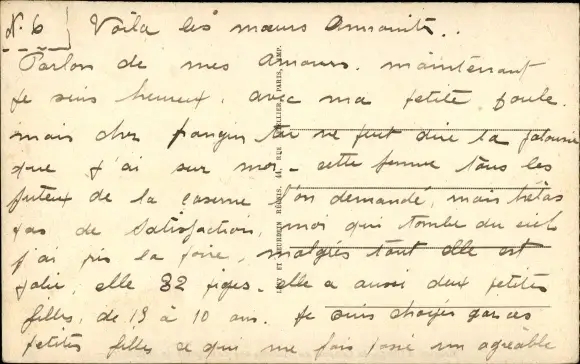 N. 6 Voila les mœurs Annamite..
Parlon de mes Amours. maintenant
je suis heureux, avec ma petite poule.
mais cher frangin tu ne peut dire la jalousie
que j'ai sur moi - cette femme tous les
de la caserne l'on demandé, mais hélas
pas de satisfaction, moi qui tombe du ciel
j'ai pris la foire, malgrés tout elle est
jolie, elle 32 piges - elle a aussi deux petites
filles, de 13 à 10 ans. je suis choyés par ces
petites filles ce qui me fais passé un agréable
LÉVY ET NEURDEIN RÉUNIS, 44, RUE LETELLIER, PARIS, IMP.